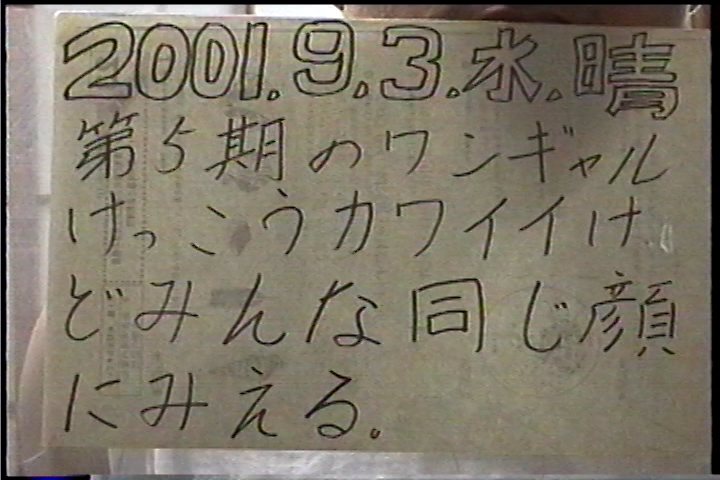 2001.9.3.水.晴
第5期のワンギャル
けっこうカワイイけ
どみんな同じ顔
にみえる。